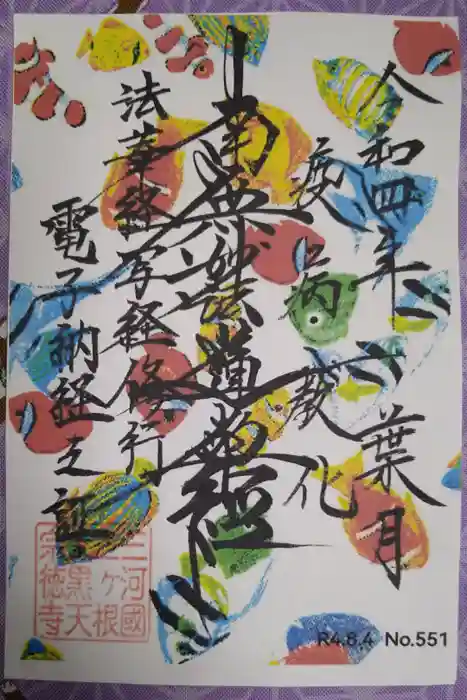 令和四年 葉月
疫病 教化
南無妙法蓮華経
法華経写経修行
電子納経之証
三河國
三ヶ根
大黒天
宗徳寺
R4.8.4 No.551